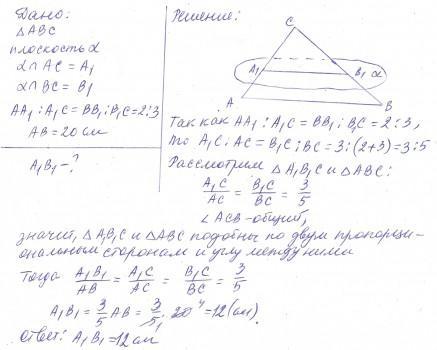 Дано:
△ABC
плоскость α
α∩AC = A₁
α∩BC = B₁
AA₁:A₁C = BB₁:B₁C = 2:3
AB = 20 см
A₁B₁ - ?
Решение:
C
A₁
B₁
α
A
B
Так как AA₁:A₁C = BB₁:B₁C = 2:3,
то A₁C:AC = B₁C:BC = 3:(2+3) = 3:5
Рассмотрим △A₁B₁C и △ABC:
A₁C/AC = B₁C/BC = 3/5
∠ACB - общий,
значит, △A₁B₁C и △ABC подобны по двум пропорци-
ональным сторонам и углу между ними
Тогда A₁B₁/AB = A₁C/AC = B₁C/BC = 3/5
A₁B₁ = 3/5 AB = 3/5₁ · 20⁴ = 12 (см)
Ответ: A₁B₁ = 12 см